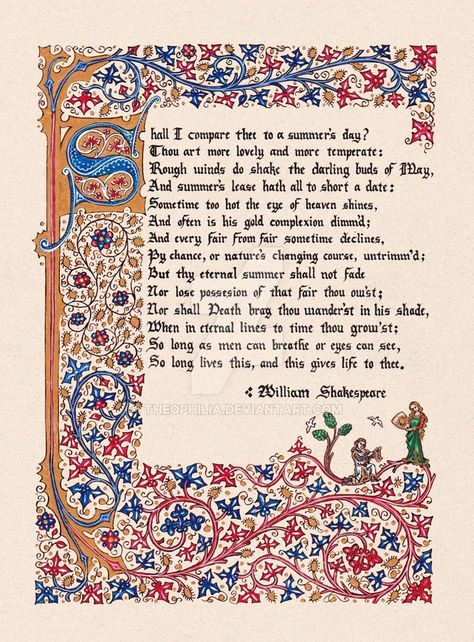 Shall I compare thee to a summer's day?
Thou art more lovely and more temperate:
Rough winds do shake the darling buds of May,
And summer's lease hath all to short a date:
Sometime too hot the eye of heaven shines,
And often is his gold complexion dimm'd;
And every fair from fair sometime declines,
By chance, or nature's changing course, untrimm'd;
But thy eternal summer shall not fade
Nor lose possesion of that fair thou ow'st;
Nor shall Death brag thou wander'st in his shade,
When in eternal lines to time thou grow'st;
So long as men can breathe or eyes can see,
So long lives this, and this gives life to thee.
William Shakespeare
THEOPHILIA.DEVIANTART.COM